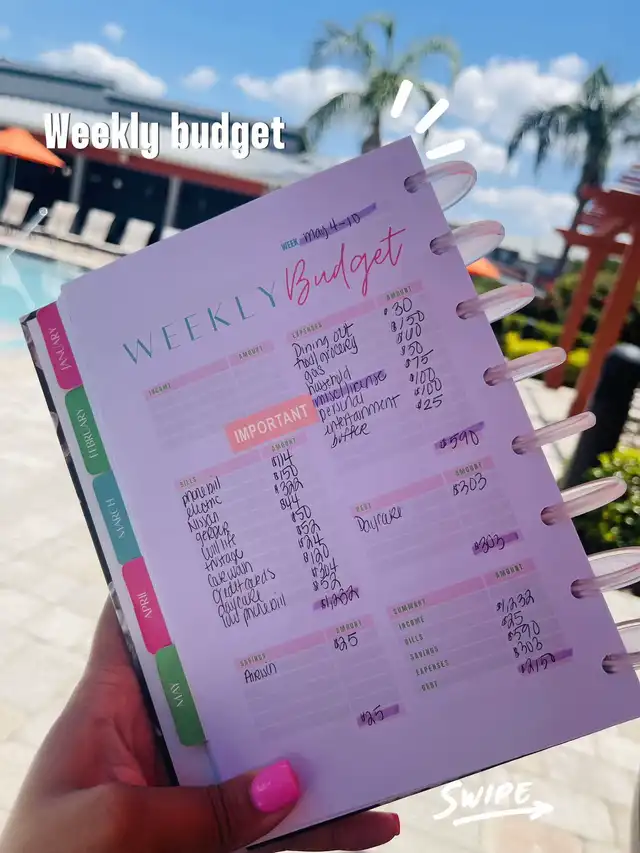 Weekly budget
WEEK May 4-10
WEEKLY Budget
INCOME AMOUNT
EXPENSES AMOUNT
Dining out $30
food/grocery $150
gas
houshold $50
misc/license $75
personal $100
entertainment $100
buffer $25
$590
IMPORTANT
BILLS AMOUNT
phone bill $114
electric $150
Nissan $322
gerber $44
$50
storage $52
car wash $24
credit cards $120
daycare
phone bill $52
$1,232
DEBT AMOUNT
Daycare $303
$303
SAVINGS AMOUNT
Airwin $25
$25
SUMMARY AMOUNT
INCOME
BILLS $1,232
SAVINGS $25
EXPENSES $590
DEBT $303
$2150
JANUARY
FEBRUARY
MARCH
APRIL
MAY
SWIPE